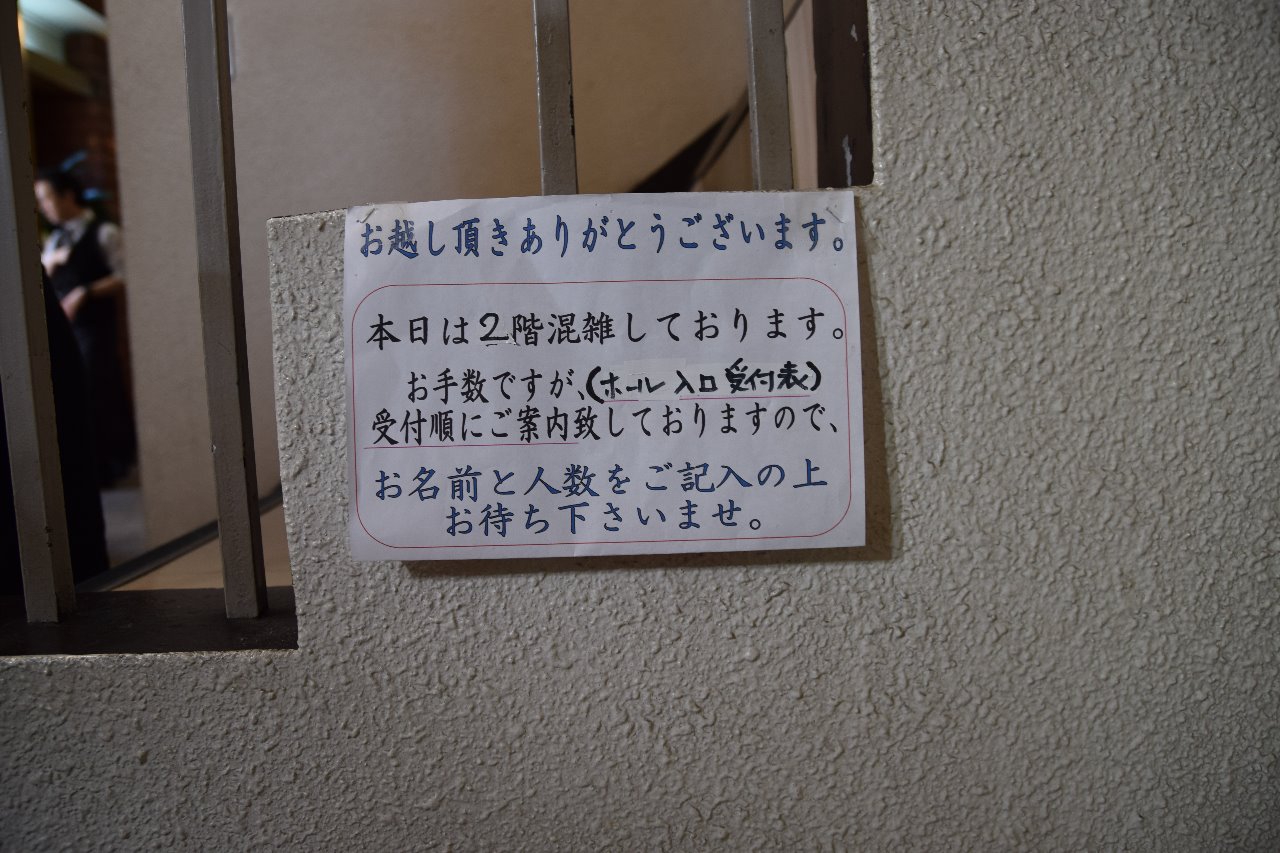 お越し頂きありがとうございます。
本日は2階混雑しております。
お手数ですが、(ホール入口受付表)
受付順にご案内致しておりますので、
お名前と人数をご記入の上
お待ち下さいませ。